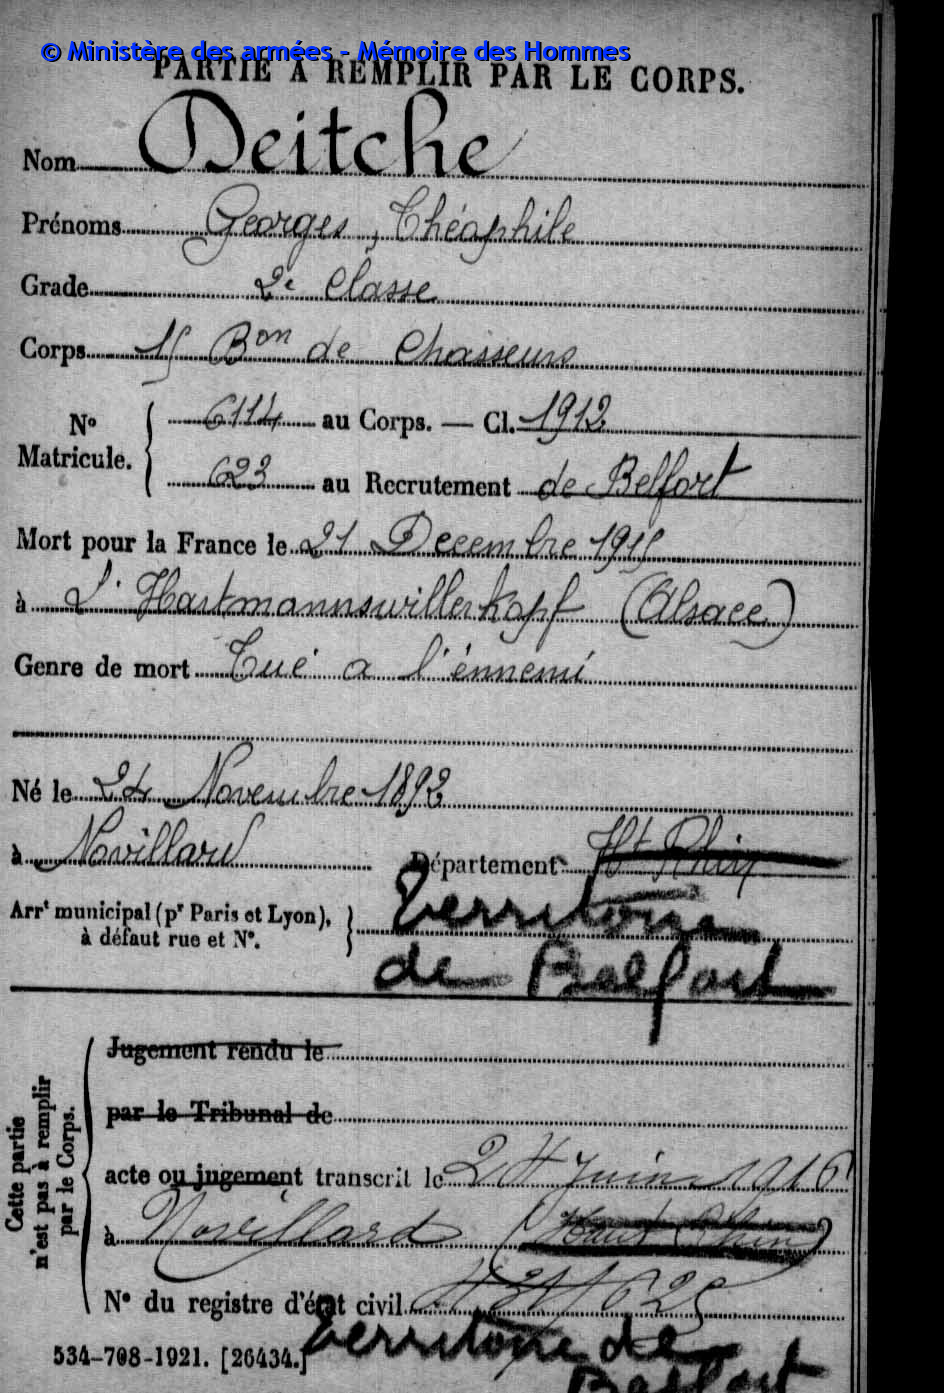 © Ministère des armées - Mémoire des Hommes
PARTIE À REMPLIR PAR LE CORPS.
Nom Deitche
Prénoms Georges, Théophile
Grade 2e Classe
Corps 15 Bon de Chasseurs
No Matricule. 6114 au Corps. — Cl. 1912
623 au Recrutement de Belfort
Mort pour la France le 21 Decembre 1915
à L'Hartmannswillerkopf (Alsace)
Genre de mort Tué a l'énnemi
Né le 24 Novembre 1892
à Novillard Département Ht Rhin
Arrt municipal (pr Paris et Lyon), à défaut rue et No. Territoire
de Belfort
Cette partie n'est pas à remplir par le Corps.
Jugement rendu le
par le Tribunal de
acte ou jugement transcrit le 24 Juin 1916
à Novillard (Haut Rhin)
No du registre d'état civil
Territoire de
Belfort
534-708-1921. [26434.]